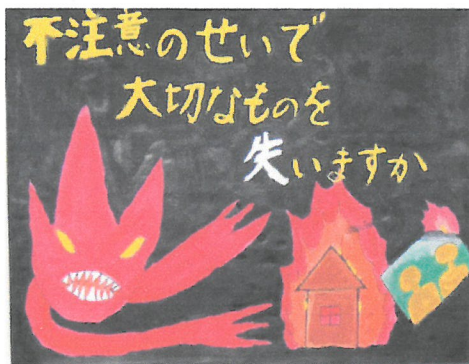 不注意のせいで
大切なものを
失いますか